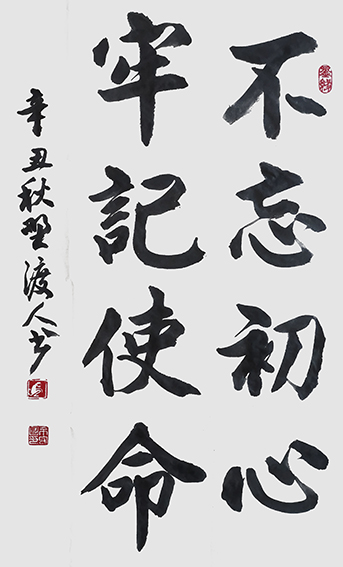 不忘初心
牢記使命
辛丑秋野渡人书